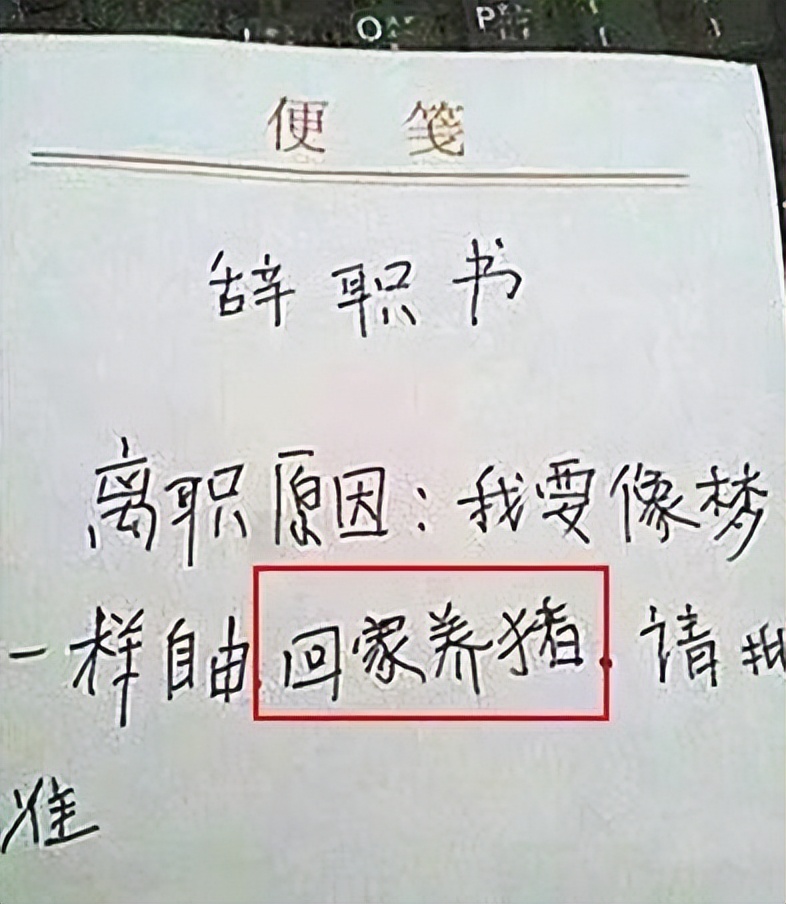 O
P
便 笺
辞职书
离职原因:我要像梦
一样自由.回家养猪.请批
准